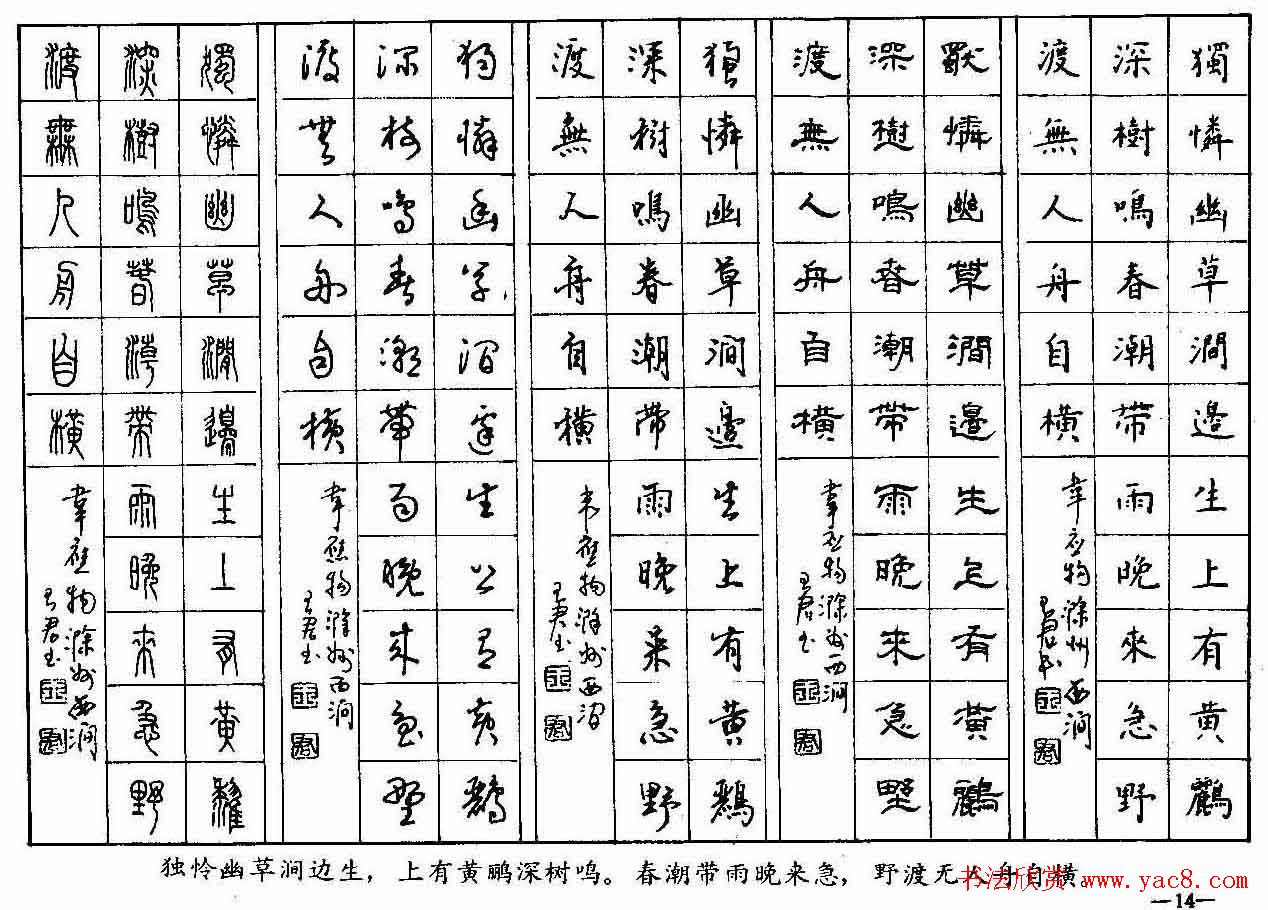 獨憐幽草澗邊生上有黃鸝
深樹鳴春潮帶雨晚來急野
渡無人舟自橫
韋应物滁州西澗
獨憐幽草澗邊生上有黃鸝
深樹鳴春潮帶雨晚來急野
渡無人舟自橫
韋应物滁州西澗
獨憐幽草澗邊生上有黃鸝
深樹鳴春潮帶雨晚來急野
渡無人舟自橫
韋應物滁州西澗
獨憐幽草澗邊生上有黃鸝
深樹鳴春潮帶雨晚來急野
渡無人舟自橫
韋應物滁州西澗
獨憐幽草澗邊生上有黃鸝
深樹鳴春潮帶雨晚來急野
渡無人舟自橫
韋應物滁州西澗
独怜幽草涧边生，上有黄鹏深树鸣。春潮带雨晚来急，野渡无人舟自横。
书法欣赏 www.yac8.com
—14—